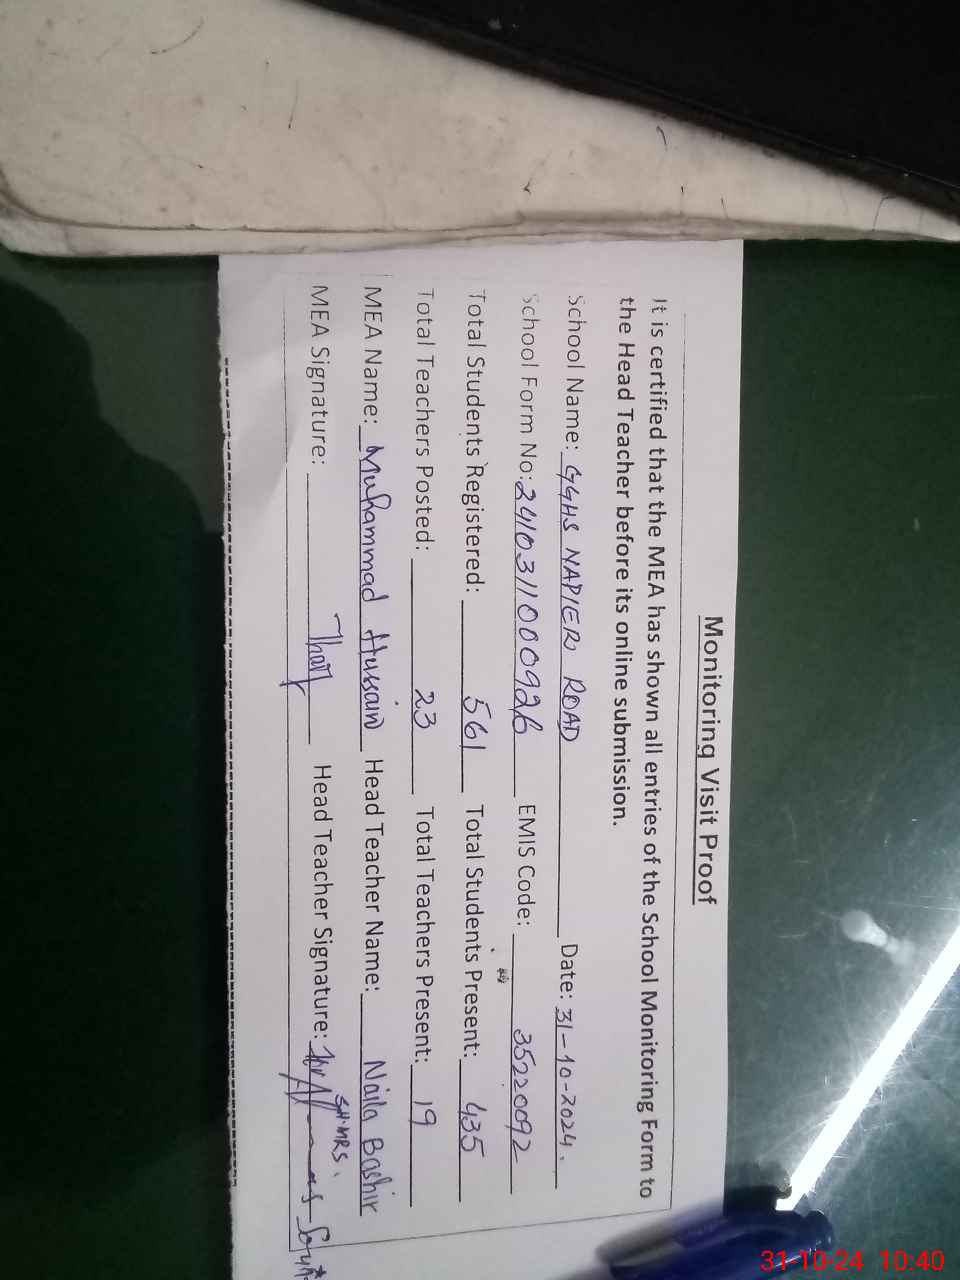 Monitoring Visit Proof
It is certified that the MEA has shown all entries of the School Monitoring Form to
the Head Teacher before its online submission.
School Name: GGHS NAPIER ROAD Date: 31-10-2024.
School Form No: 24103110000926 EMIS Code: 35220092
Total Students Registered: 561 Total Students Present: 435
Total Teachers Posted: 23 Total Teachers Present: 19
MEA Name: Muhammad Hussain Head Teacher Name: Naila Bashir
MEA Signature: Head Teacher Signature:
31-10-24 10:40